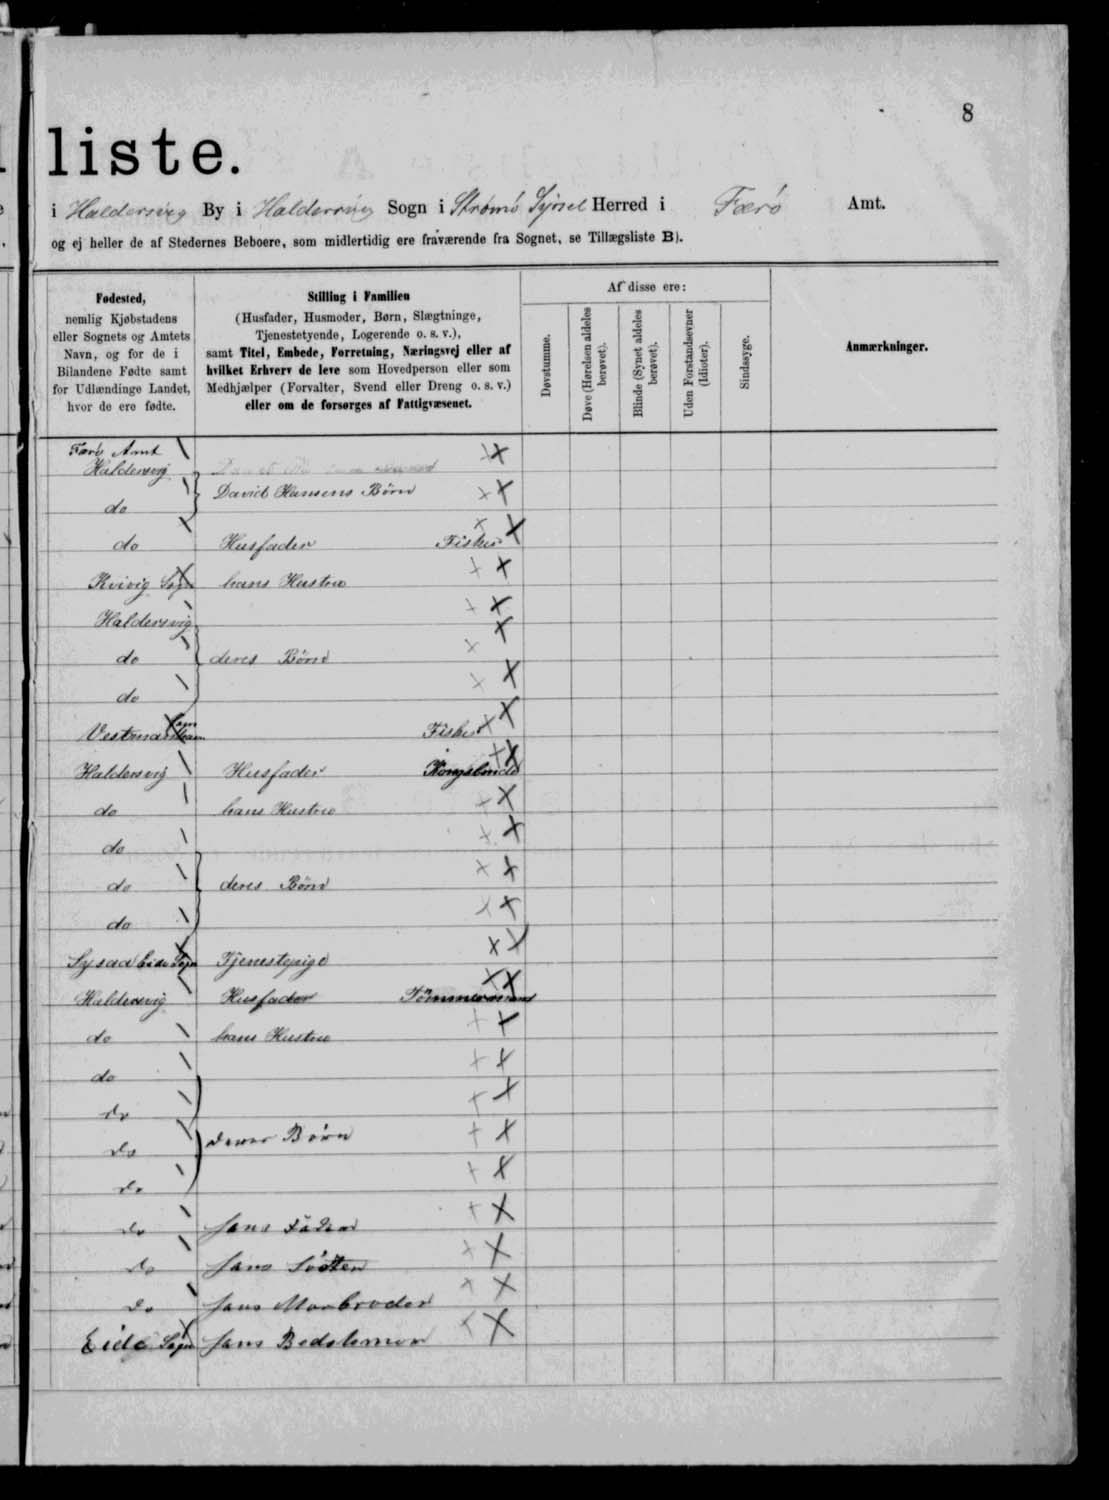 8
liste.
i Haldersvig By i Haldersvig Sogn i Strømø Syssel Herred i Færö Amt.
og ej heller de af Stedernes Beboere, som midlertidig ere fraværende fra Sognet, se Tillægsliste B).
Fødested,
nemlig Kjøbstadens
eller Sognets og Amtets
Navn, og for de i
Bilandene Fødte samt
for Udlændinge Landet,
hvor de ere fødte.
Stilling i Familien
(Husfader, Husmoder, Børn, Slægtninge,
Tjenestetyende, Logerende o. s. v.),
samt Titel, Embede, Forretning, Næringsvej eller af
hvilket Erhverv de leve som Hovedperson eller som
Medhjælper (Forvalter, Svend eller Dreng o. s. v.)
eller om de forsørges af Fattigvæsenet.
Af disse ere:
Døvstumme.
Døve (Hørelsen aldeles
berøvet).
Blinde (Synet aldeles
berøvet).
Uden Forstandsevner
(Idioter).
Sindssyge.
Anmærkninger.
Færö Amt
Haldersvig
do David Hansens Börn
do Husfader Fisker
Kvivig Sogn hans Hustru
Haldersvig
do deres Börn
do
Vestmanhavn Fisker
Haldersvig Husfader Kongsbonde
do hans Hustru
do
do deres Börn
do
Eide Sogn Tjenestepige
Haldersvig Husfader Tömmermand
do hans Hustru
do
do
do deres Börn
do
do hans Fader
do hans Söster
do hans Morbroder
Eide Sogn hans Bedstemor